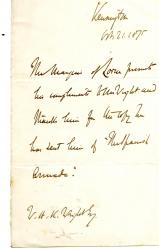 Kensington
Oct. 21. 1875
The Marquis of Lorne presents
his compliments to Mr Wright and
thanks him for the copy he
has sent him of "The Spanish
Armada."
W. H. K. Wright Esq